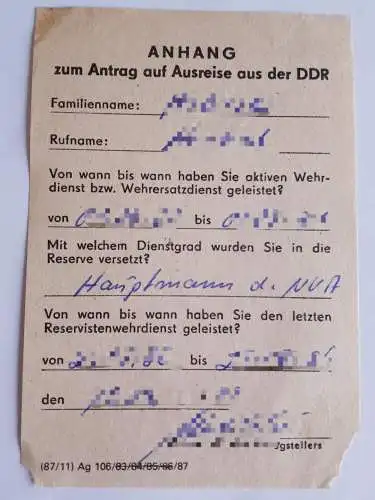 ANHANG
zum Antrag auf Ausreise aus der DDR
Familienname:
Rufname:
Von wann bis wann haben Sie aktiven Wehr-
dienst bzw. Wehrersatzdienst geleistet?
von bis
Mit welchem Dienstgrad wurden Sie in die
Reserve versetzt?
Hauptmann d. NVA
Von wann bis wann haben Sie den letzten
Reservistenwehrdienst geleistet?
von bis
den
gstellers
(87/11) Ag 106/83/84/85/86/87